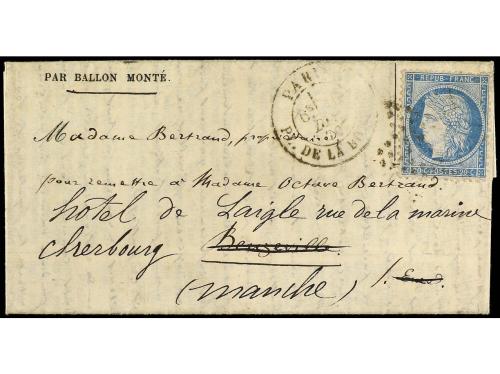 PAR BALLON MONTÉ.
PARIS
PL. DE LA BO
REPUB. FRANC.
20 C. POSTES 20 C.
Madame Bertrand,
pour remettre à Madame Octave Bertrand
hôtel de Laigle rue de la marine
cherbourg Beuzeville
(manche) /.